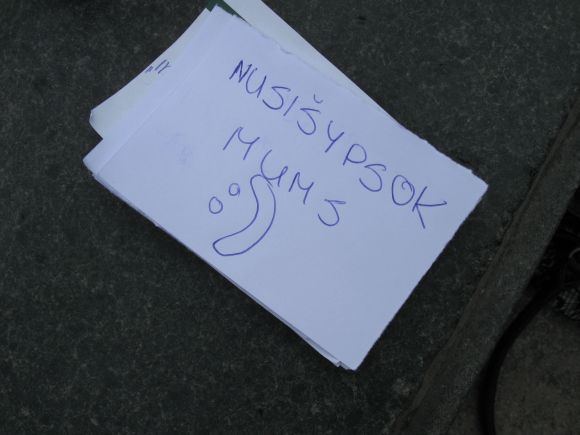 NUSIŠYPSOK
MUMS